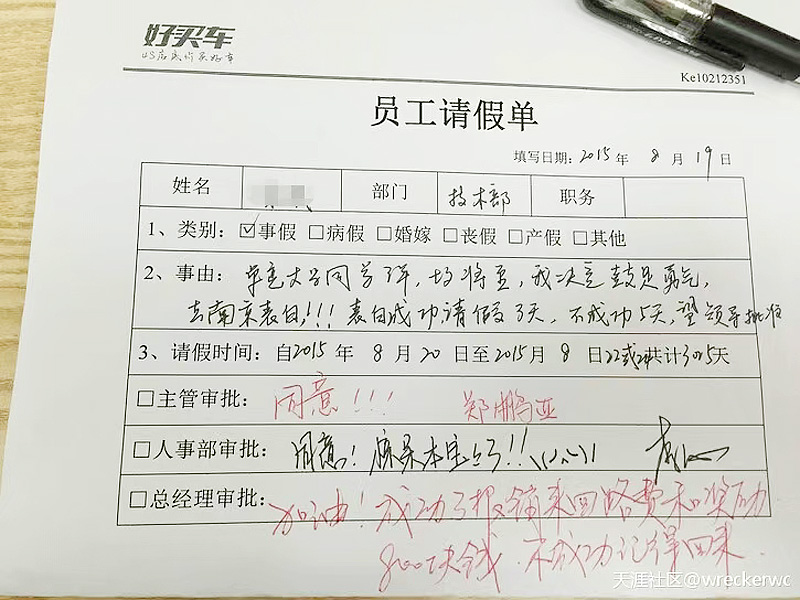 好买车
4S店底价买好车
Ke10212351
员工请假单
填写日期:2015年 8月19日
姓名 部门 技术部 职务
1、类别:☑事假 □病假 □婚嫁 □丧假 □产假 □其他
2、事由: 单恋大学同学3年,七夕将至,我决定鼓足勇气,
去南京表白!!!表白成功请假3天,不成功5天,望领导批准
3、请假时间:自2015年 8月20日至2015月8日22或24共计3or5天
□主管审批: 同意!!! 郑鹏亚
□人事部审批: 同意!麻呆本宝宝了!!
□总经理审批: 加油!成功了报销来回路费和奖励
800块钱,不成功记得回来.
天涯社区@wreckerwc